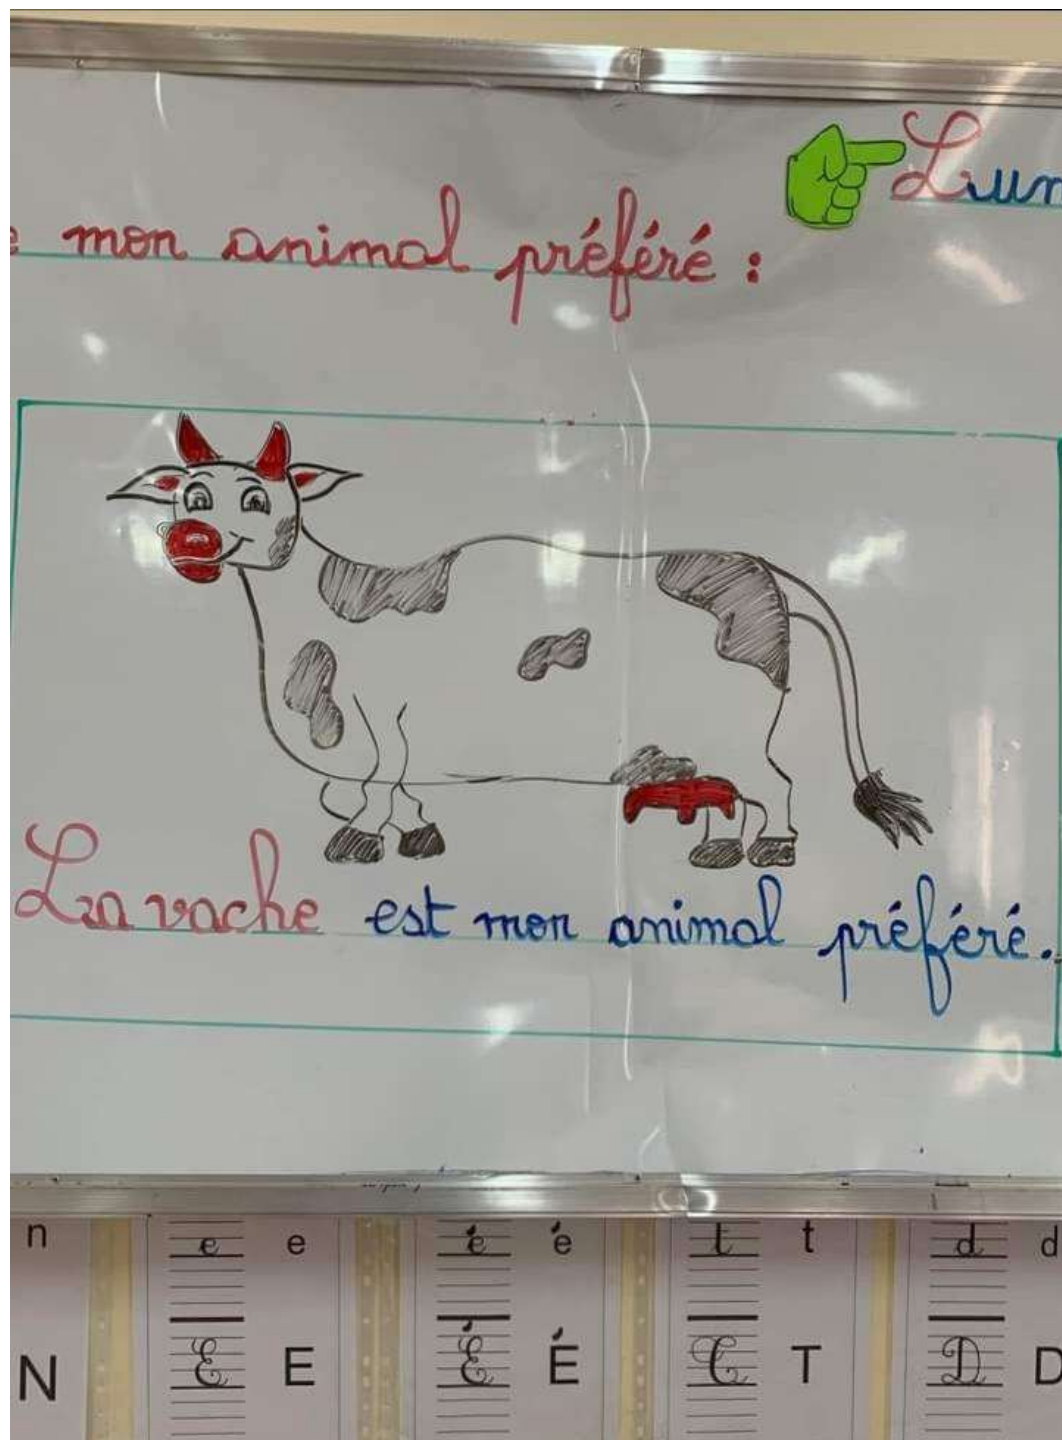 Lun
e mon animal préféré :
La vache est mon animal préféré.
n e e é é t t d d
N E E É É T T D D